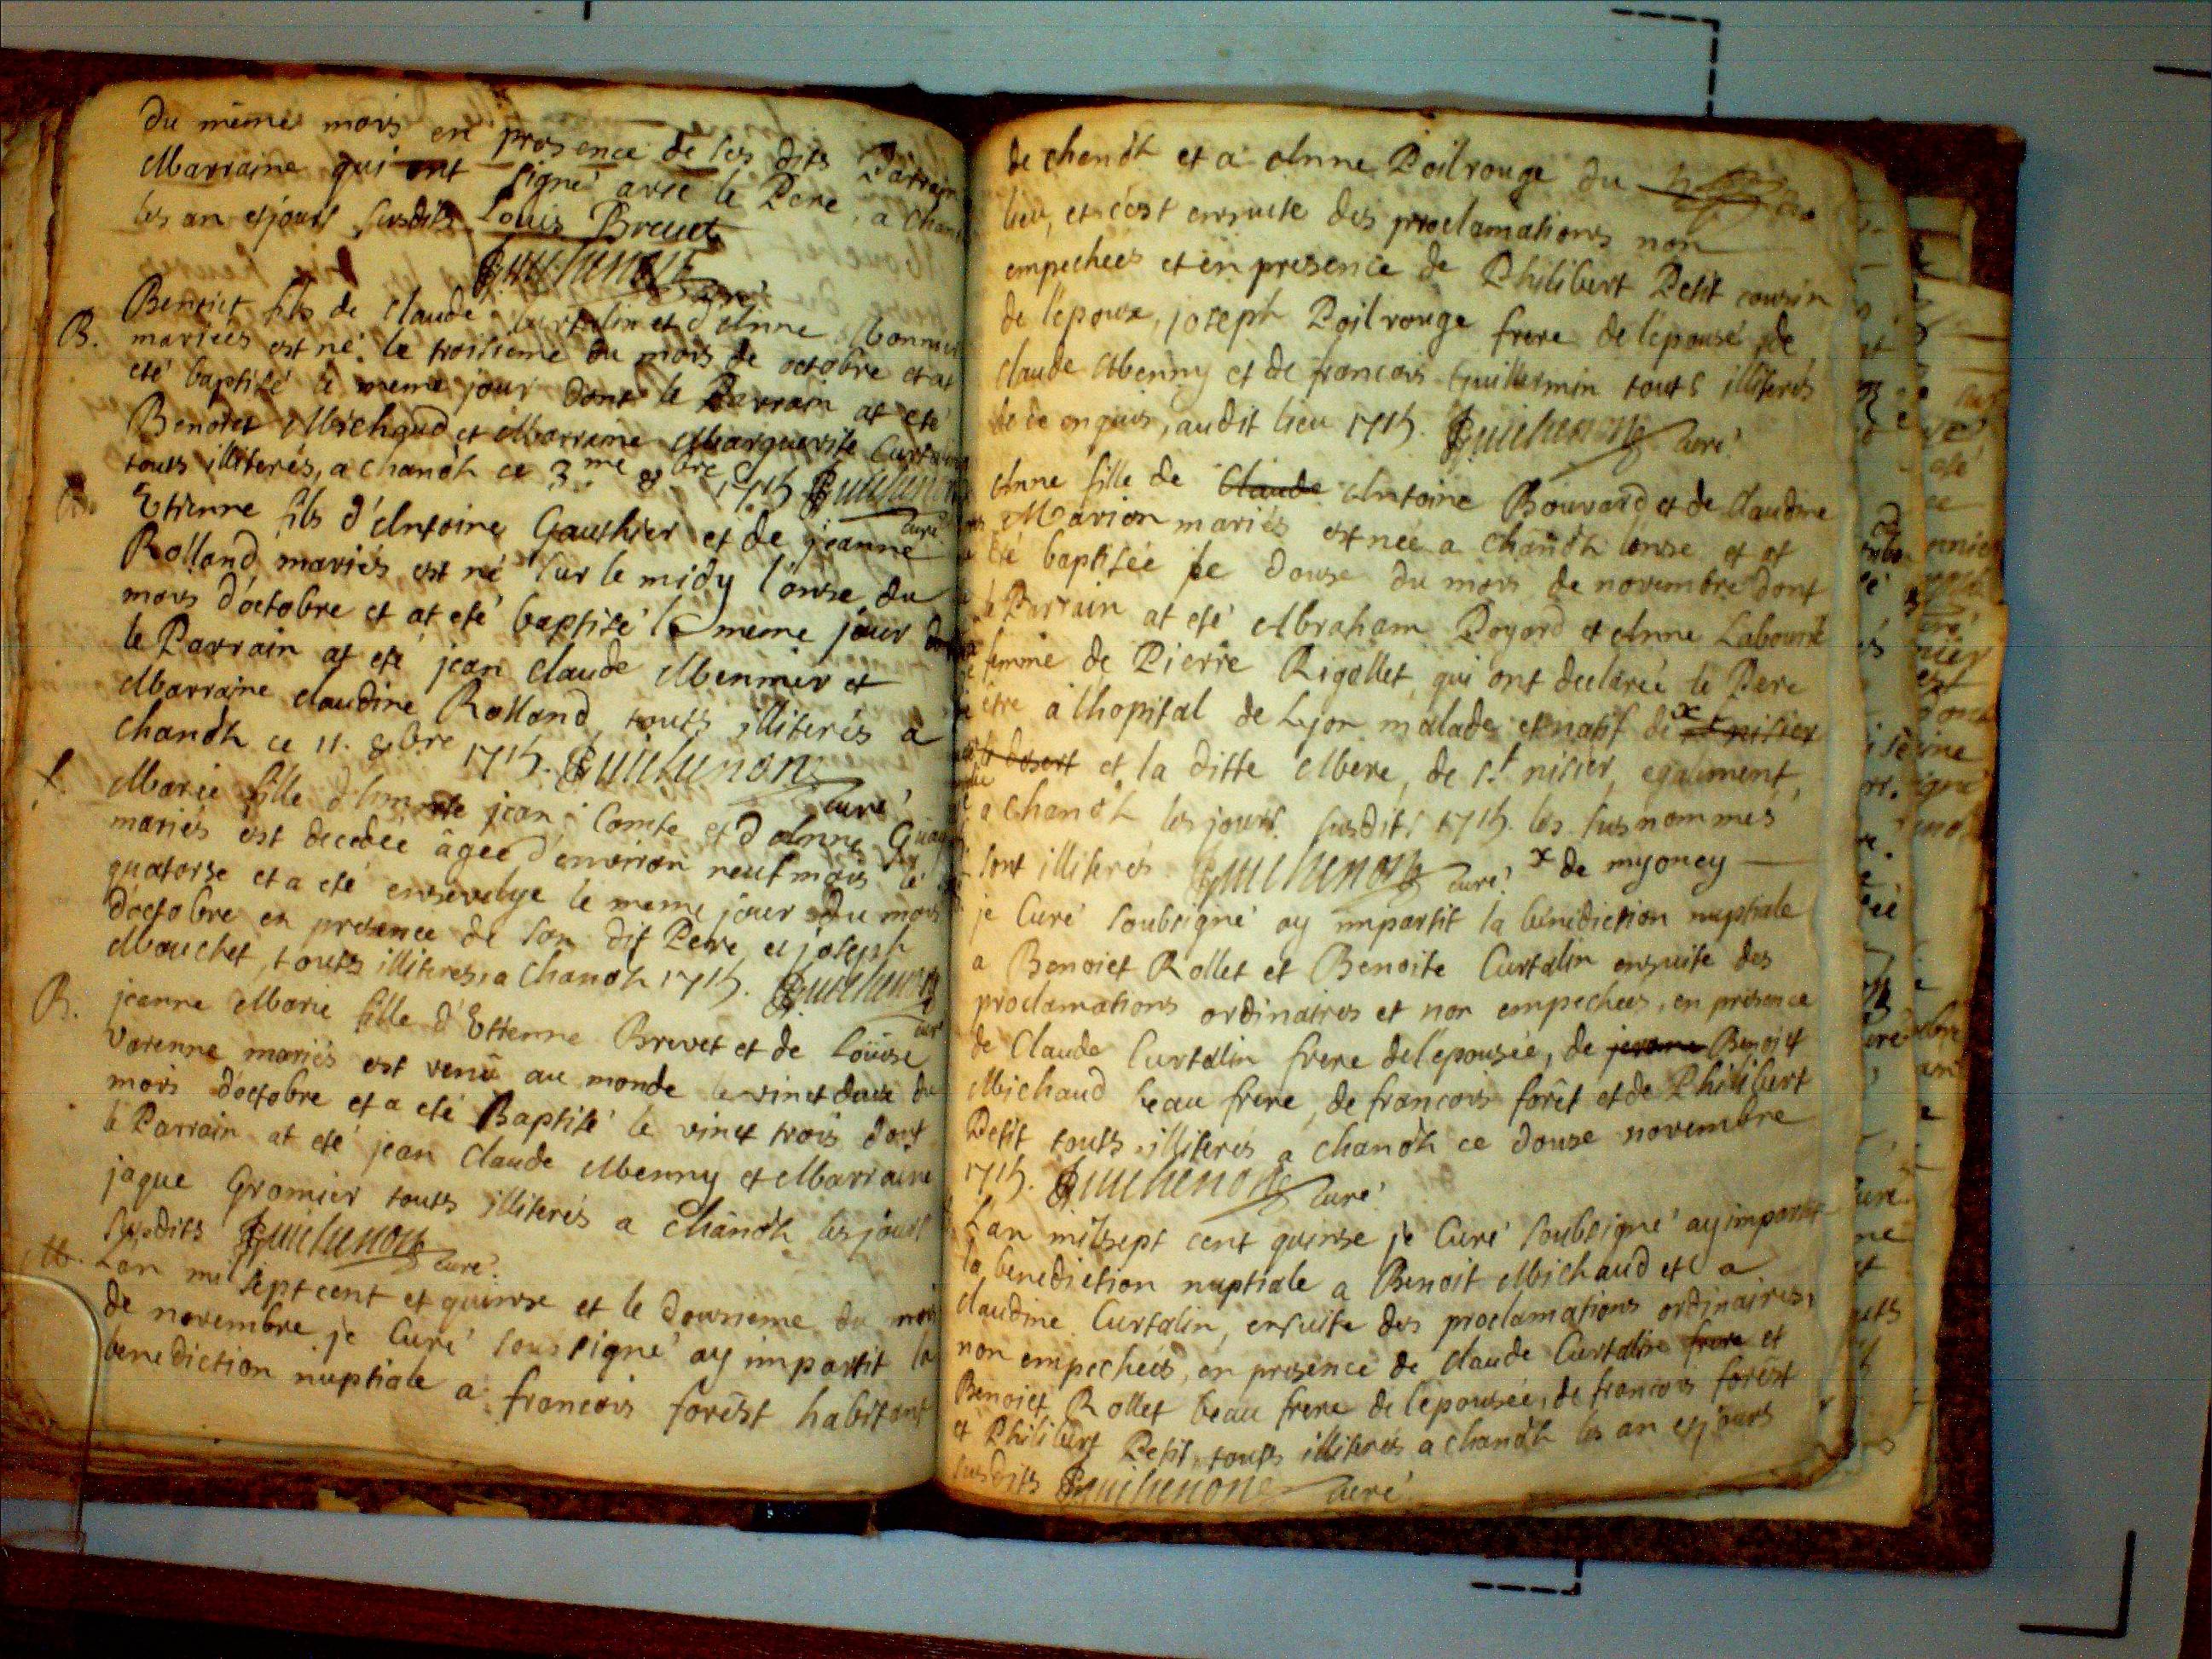 du même mois en presence de ses dits Parrain
Marraine qui ont signé avec le Pere, a Chan
les an et jours susdits Louis Brevet
Guichenon curé
B. Benoict fils de Claude Curtalin et d'Anne Monnier
mariées est né le troisieme du mois de octobre et at
eté baptisé le meme jour dont le Parrain at eté
Benoict Michaud et Marraine Marguerite Curtalin
touts illiterés, a chanôh ce 3.me 8bre 1715 Guichenon
curé
B. Etienne fils d'Antoine Gauthier et de jeanne
Rolland mariés, est né sur le midy l'onse du
mois d'octobre et at eté baptisé le même jour dont
le Parrain at eté jean Claude Mennier et
Marraine Claudine Rolland touts illiterés a
chanôh ce 11. 8bre 1715. Guichenon curé
Marie fille d'honneste jean Comte et d'Anne
mariés est decedée âgée d'environ neuf mois le
quatorse et a eté ensevelye le meme jour du mois
d'octobre en presence de son dit Pere et joseph
Mouchet, touts illiteres, a chanôh 1715. Guichenon
curé
B. jeanne Marie fille d'Etienne Brevet et de Loüise
Varenne mariés est venü au monde le vinct deux du
mois d'octobre et a eté Baptisé le vinct trois dont
le Parrain at eté jean Claude Menny et Marraine
jaque Gromier touts illiterés a chânôh les jours
susdits Guichenon curé.
M. L'an mil sept cent et quinse et le dousieme du mois
de novembre je Curé soussigné ay impartit la
benediction nuptiale a francois forêst habitant
de chanôh et a Anne Poilrouge du
lieu, et c'est ensuite des proclamations non
empechees et en presence de Philibert Petit cousin
de l'epoux, joseph Poilrouge frere de l'epouse de
Claude Menny et de francois Guillermin touts illiterés
de ce enquis, audit lieu 1715. Guichenon curé
Anne fille de Claude Antoine Bouvard et de Claudine
Marion mariés est née a chanôh l'onse et at
eté baptisée le douse du mois de novembre dont
le Parrain at eté Abraham Poyard et Anne Labourie
femme de Pierre Rigollet, qui ont declareé le Pere
être a l'hopital de Lyon malade et natif de x st nisier
le desert et la ditte Mere, de st nisier, egaliment,
a chanôh les jours susdits 1715. les susnommes
sont illiterés Guichenon curé. x de myoney
je Curé soubsigné ay impartit la bénédiction nuptiale
a Benoict Rollet et Benoite Curtalin ensuite des
proclamations ordinaires et non empechees, en présence
de Claude Curtalin frere de l'epousée, de jerome Benoict
Michaud beau frere, de francois forêt et de Philibert
Petit touts illiterés a chanôh ce douse novembre
1715. Guichenon curé
L'an mil sept cent quinse je Curé soubsigné ay impartit
la benediction nuptiale a Benoit Michaud et a
Claudine Curtalin, ensuite des proclamations ordinaires,
non empechées, en presence de Claude Curtalin frere et
Benoict Rollet beau frere de l'epousée, de francois forêst
et Philibert Petit touts illiterés a chanôh les an et jours
susdits Guichenon curé